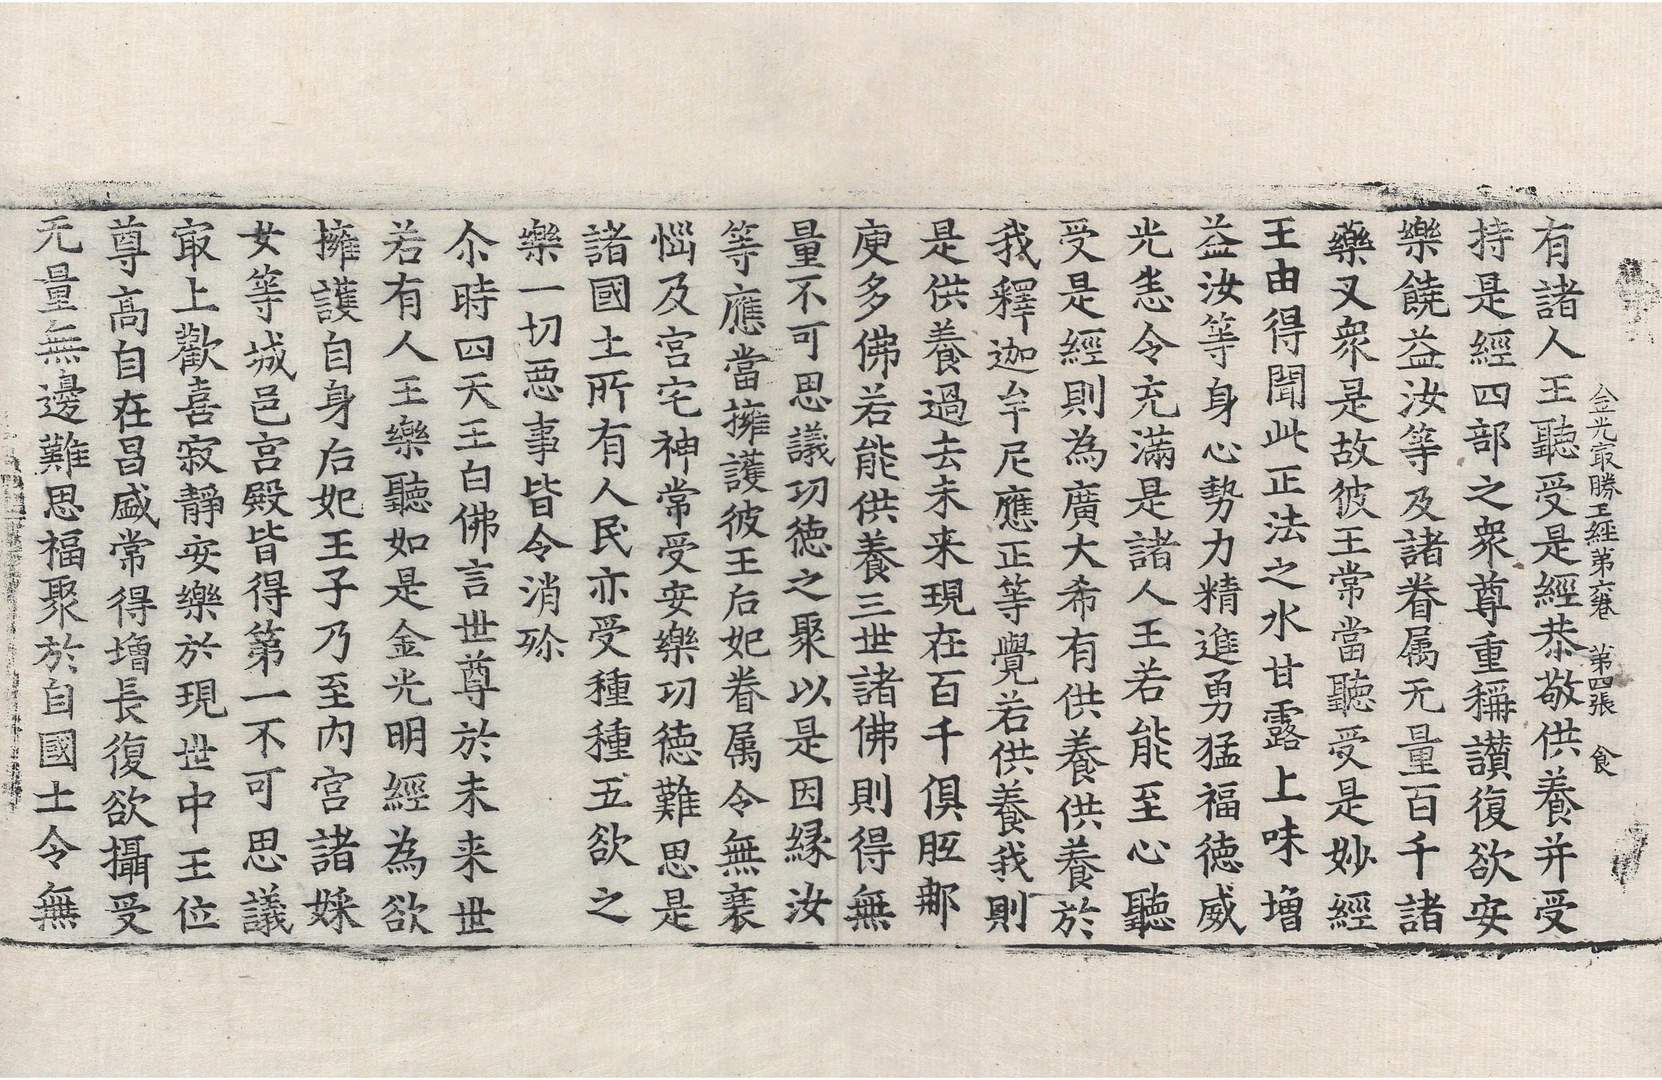 金光㝡勝王經第六卷　第四張　食
有諸人王聽受是經恭敬供養并受
持是經四部之衆尊重稱讃復欲安
樂饒益汝等及諸眷属无量百千諸
藥叉衆是故彼王常當聽受是妙經
王由得聞此正法之水甘露上味增
益汝等身心勢力精進勇猛福德威
光悉令充滿是諸人王若能至心聽
受是經則為廣大希有供養供養於
我釋迦牟尼應正等覺若供養我則
是供養過去未来現在百千俱胝那
庾多佛若能供養三世諸佛則得無
量不可思議功德之聚以是因縁汝
等應當擁護彼王后妃眷属令無衰
惱及宫宅神常受安樂功德難思是
諸國土所有人民亦受種種五欲之
樂一切惡事皆令消殄
尒時四天王白佛言世尊於未来世
若有人王樂聽如是金光明經為欲
擁護自身后妃王子乃至内宫諸婇
女等城邑宫殿皆得第一不可思議
㝡上歡喜寂靜安樂於現世中王位
尊高自在昌盛常得增長復欲攝受
无量無邊難思福聚於自國土令無